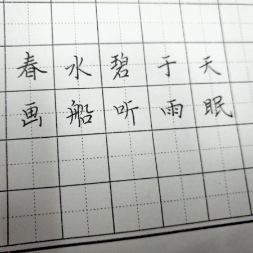 春水碧于天
画船听雨眠